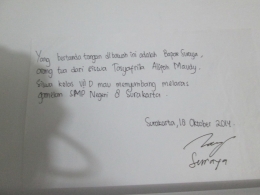 Yang bertanda tangan di bawah ini adalah Bapak Suraya,
orang tua dari siswa Tasyafrita Maudy.
Siswi kelas VII D mau menyumbang melaras
gamelan SMP Negeri 8 Surakarta.
Surakarta, 18 Oktober 2014.
Suraya